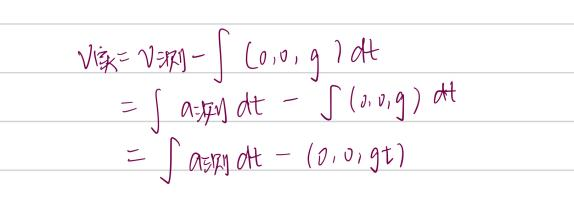 V实=V测-∫(0,0,g)dt
=∫a测dt-∫(0,0,g)dt
=∫a测dt-(0,0,gt)